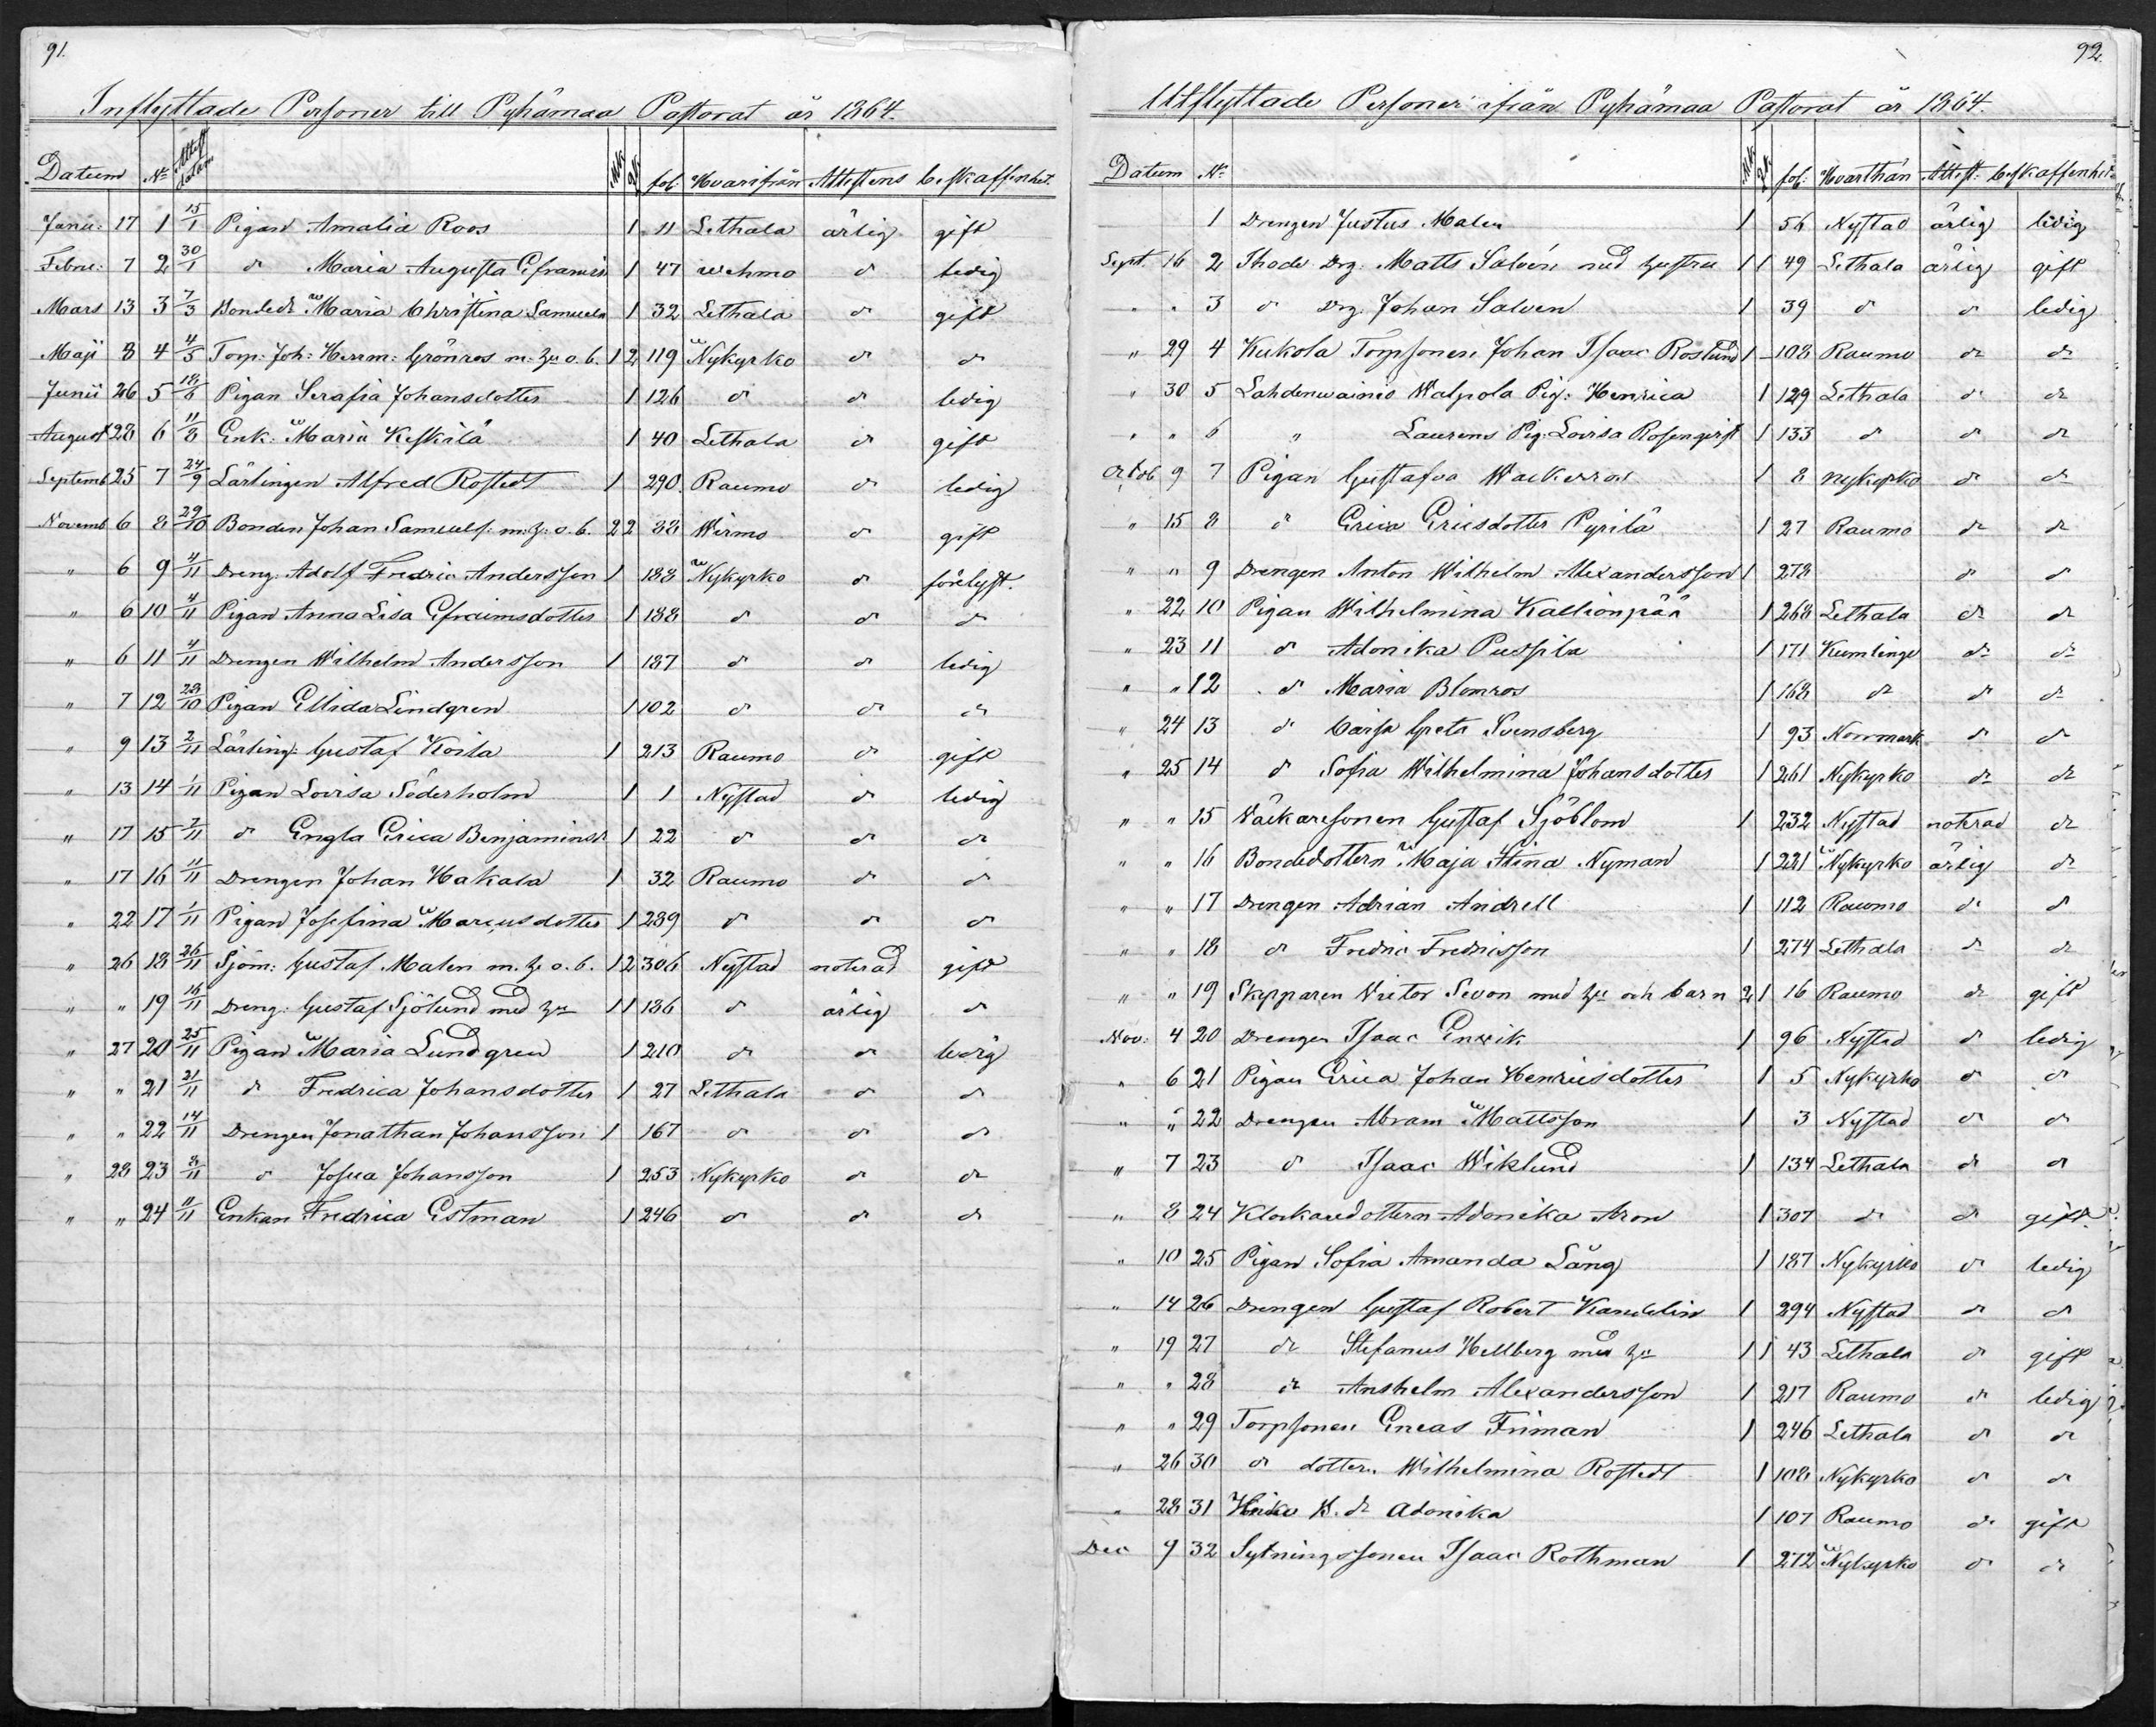 91.
Inflyttade Personer till Pyhämaa Pastorat år 1864.
Datum No Attest datum Mk. Qk. fol. Hvarifrån Attestens beskaffenhet.
Janu: 17 1 15/1 Pigan Amalia Roos 1 11 Lethala ärlig gift
Febru: 7 2 30/1 d:o Maria Augusta Efraimsd. 1 47 Wehmo d:o ledig
Mars 13 3 7/3 Bonded:r Maria Christina Samuels 1 32 Lethala d:o gift
Maji 8 4 4/5 Torp: Joh: Herrm: Grönros m. hu o. b. 1 2 119 Nykyrko d:o d:o
Junii 26 5 18/6 Pigan Serafia Johansdotter 1 126 d:o d:o ledig
August 28 6 11/8 Enk: Maria Keskilä 1 40 Lethala d:o gift
Septemb 25 7 24/9 Lärlingen Alfred Rostedt 1 290 Raumo d:o ledig
Novemb 6 8 29/10 Bonden Johan Samuels: m. h: o. b. 2 2 88 Wirmo d:o gift
" 6 9 4/11 Dreng: Adolf Fredric Andersson 1 188 Nykyrko d:o förelyst.
" 6 10 4/11 Pigan Anna Lisa Efraimsdotter 1 188 d:o d:o d:o
" 6 11 4/11 Drengen Wilhelm Andersson 1 187 d:o d:o ledig
" 7 12 28/10 Pigan Ellida Lindgren 1 102 d:o d:o d:o
" 9 13 2/11 Lärling: Gustaf Koila 1 213 Raumo d:o gift
" 13 14 1/11 Pigan Lovisa Söderholm 1 1 Nystad d:o ledig
" 17 15 7/11 d:o Engla Erica Benjaminsd: 1 22 d:o d:o d:o
" 17 16 11/11 Drengen Johan Hakala 1 32 Raumo d:o d:o
" 22 17 1/11 Pigan Josefina Marcusdotter 1 289 d:o d:o d:o
" 26 18 26/11 Sjöm: Gustaf Malen m. h. o. b. 1 2 306 Nystad noterad gift
" " 19 16/11 Dreng: Gustaf Sjölund med hu 1 1 186 d:o ärlig d:o
" 27 20 25/11 Pigan Maria Lundgren 1 210 d:o d:o ledig
" " 21 21/11 d:o Fredrica Johansdotter 1 27 Lethala d:o d:o
" " 22 14/11 Drengen Jonathan Johansson 1 167 d:o d:o d:o
" 28 23 8/11 d:o Josua Johansson 1 253 Nykyrko d:o d:o
" " 24 11/11 Enkan Fredrica Estman 1 246 d:o d:o d:o
92.
Utflyttade Personer ifrån Pyhämaa Pastorat år 1864.
Datum No Mk. Qk. fol. Hvarthän Attest: beskaffenhet
1 Drengen Justus Malen 1 56 Nystad ärlig ledig
Sept. 16 2 Ihode Drg. Matts Salvén med hustru 1 1 49 Lethala ärlig gift
" " 3 d:o Drg. Johan Salven 1 39 d:o d:o ledig
" 29 4 Kukola Torpsonen Johan Isaac Roslund 1 108 Raumo d:o d:o
" 30 5 Lahdenwainio Walpola Pig: Henrica 1 129 Lethala d:o d:o
" " 6 " Laurens Pig: Lovisa Rosenqvist 1 133 d:o d:o d:o
Octob 9 7 Pigan Gustafva Wackerros 1 8 Nykyrko d:o d:o
" 15 8 d:o Erica Ericsdotter Pyrilä 1 27 Raumo d:o d:o
" " 9 Drengen Anton Wilhelm Alexandersson 1 278 d:o d:o
" 22 10 Pigan Wilhelmina Kallionpää 1 268 Lethala d:o d:o
" 23 11 d:o Adonika Pussila 1 171 Kumlinge d:o d:o
" " 12 d:o Maria Blomros 1 168 d:o d:o d:o
" 24 13 d:o Caisa Greta Svensberg 1 93 Norrmark d:o d:o
" 25 14 d:o Sofia Wilhelmina Johansdotter 1 261 Nykyrko d:o d:o
" " 15 Wäckaresonen Gustaf Sjöblom 1 232 Nystad noterad d:o
" " 16 Bondedottern Maja Stina Nyman 1 221 Nykyrko ärlig d:o
" " 17 Drengen Adrian Andrell 1 112 Raumo d:o d:o
" " 18 d:o Fredric Fredricsson 1 274 Lethala d:o d:o
" " 19 Skepparen Victor Sevon med hu och barn 2 1 16 Raumo d:o gift
Nov: 4 20 Drengen Isaac Enwik 1 96 Nystad d:o ledig
" 6 21 Pigan Erica Johan Henricsdotter 1 5 Nykyrko d:o d:o
" " 22 Drengen Abram Mattsson 1 3 Nystad d:o d:o
" 7 23 d:o Isaac Wiklund 1 134 Lethala d:o d:o
" 8 24 Klockaredottern Adonika Aron 1 307 d:o d:o gift.
" 10 25 Pigan Sofia Amanda Lång 1 187 Nykyrko d:o ledig
" 14 26 Drengen Gustaf Robert Kandelin 1 294 Nystad d:o d:o
" 19 27 d:o Stefanus Hellberg med hu 1 1 43 Lethala d:o gift
" " 28 d:o Anshelm Alexandersson 1 217 Raumo d:o ledig
" " 29 Torpsonen Eneas Friman 1 246 Lethala d:o d:o
" 26 30 d:o dottern Wilhelmina Rostedt 1 108 Nykyrko d:o d:o
" 28 31 B. d:r Adonika 1 107 Raumo d:o gift
Dec 9 32 Sytningssonen Isaac Rothman 1 272 Nykyrko d:o d:o